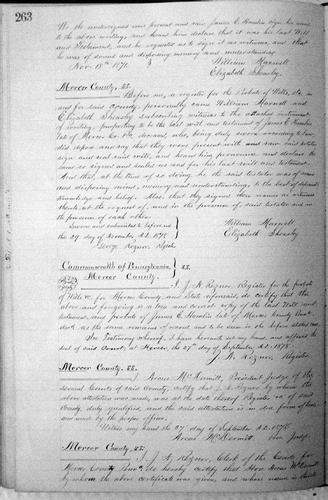 263
We the undersigned were present and saw James C. Hamlin sign his name
to the above writing, and heard him declare that it was his last Will
and Testament, and he requested us to sign it as witness, and that
he was of sound and disposing memory and understanding
Nov 18th 1871. William Maxwell
Elizabeth Sheasby
Mercer County, SS.
Before me, a register for the Probate of Wills, &c. in
and for said County, personally came William Maxwell and
Elizabeth Sheasby subscribing witnesses to the attached instrument
of writing, purporting to be the last will and testament of James C. Hamlin
late of Mercer Co. Pa. deceased, who, being duly sworn according to law
did depose and say that they were present with and saw said testator
sign and seal said will, and heard him pronounce and declare the
same so signed and sealed as and for his last will and testament.
And that, at the time of so doing he the said testator was of sound
and disposing mind, memory and understanding, to the best of deponents
knowledge and belief. Also, that they signed their names as witnesses
thereto at the request of, and in the presence of, said testator and in
the presence of each other.
Sworn and subscribed to before me William Maxwell
the 29 day of November A.D. 1871 Elizabeth Sheasby
Register
Commonwealth of Pennsylvania
Mercer County. SS.
I, J. A. Reznor, Register, for the probate
of Wills &c. for Mercer County, and State aforesaid, do certify that the
above and foregoing is a true and correct copy of the last Will and
testament, and probate of James C. Hamlin late of Mercer County
as the same remains of record and to be seen in the before stated
In Testimony Whereof, I have hereunto set my hand, and affixed the
seal of said Court, at Mercer, the 27th day of September A.D. 1875.
J. A. Reznor Register
Mercer County. SS.
I, Arcus McDermitt, President Judge of the
several Courts of said County, certify that J. A. Reznor by whom the
above attestation was made, was at the date thereof Register &c of said
County, duly qualified, and the said attestation is in due form of law
and made by the proper officer.
Witness my hand the 27 day of September A.D. 1875
McDermitt Judge
Mercer County, SS.
I, J. A. Reznor, Clerk of the Courts for
Mercer County do hereby certify that Hon. McDermitt
by whom the above certificate was given, and whose name is thereto